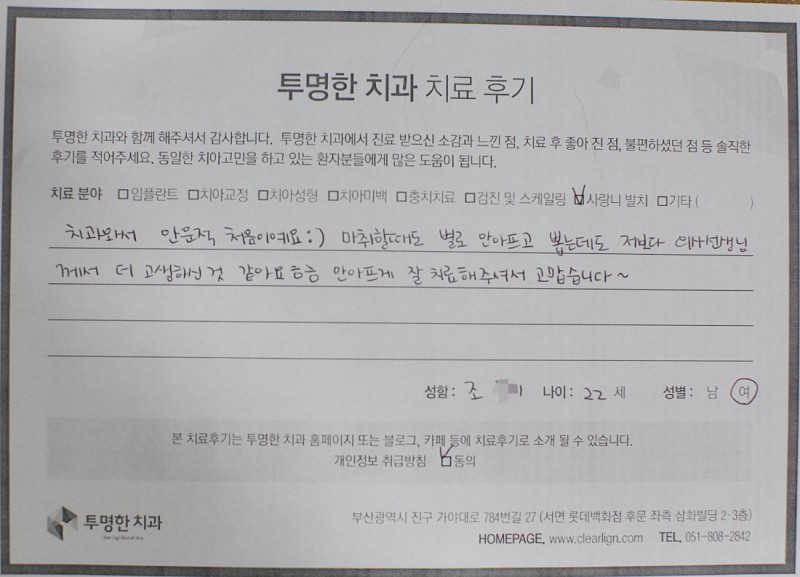 투명한 치과 치료 후기
투명한 치과와 함께 해주셔서 감사합니다. 투명한 치과에서 진료 받으신 소감과 느낀 점, 치료 후 좋아 진 점, 불편하셨던 점 등 솔직한
후기를 적어주세요. 동일한 치아고민을 하고 있는 환자분들에게 많은 도움이 됩니다.
치료 분야 □임플란트 □치아교정 □치아성형 □치아미백 □충치치료 □검진 및 스케일링 ☑사랑니 발치 □기타 ( )
치과와서 안운적 처음이예요:) 마취할때도 별로 안아프고 뽑는데도 저보다 의사선생님
께서 더 고생하신것 같아요ㅎㅎ 안아프게 잘 치료해주셔서 고맙습니다~
성함: 조 나이: 22 세 성별: 남 여
본 치료후기는 투명한 치과 홈페이지 또는 블로그, 카페 등에 치료후기로 소개 될 수 있습니다.
개인정보 취급방침 ☑동의
투명한 치과
부산광역시 진구 가야대로 784번길 27 (서면 롯데백화점 후문 좌측 삼화빌딩 2·3층)
HOMEPAGE. www.clearlign.com TEL. 051-808-2842